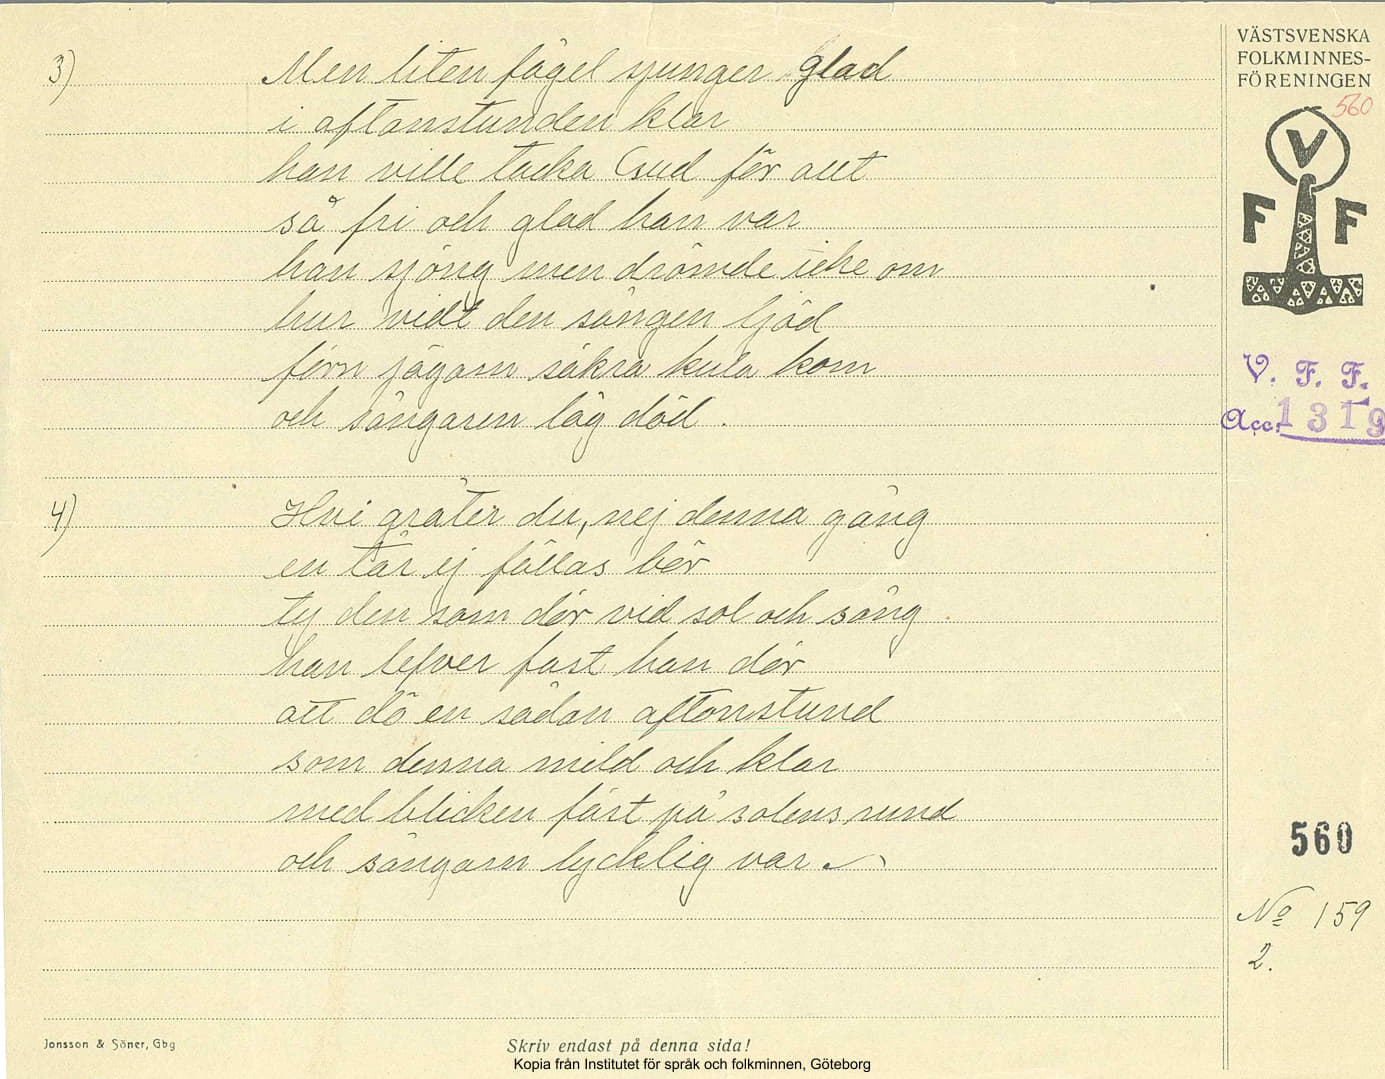 VÄSTSVENSKA
FOLKMINNES-
FÖRENINGEN
560
V
F F
V. F. F.
Acc. 1319
3) Men liten fågel sjunger glad
i aftonstunden klar
han ville tacka Gud för allt
så fri och glad han var
han sjöng men drömde icke om
hur vidt den sången ljöd
förrn jägarn säkra kula kom
och sångaren låg död.
4) Hvi gråter du, nej denna gång
en tår ej fällas bör
ty den som dör vid sol och sång
han lefver fast han dör
att dö en sådan aftonstund
som denna mild och klar
med blicken fäst på solens rund
och sångarn lycklig var
560
No 159
2.
Jonsson & Söner, Gbg
Skriv endast på denna sida!
Kopia från Institutet för språk och folkminnen, Göteborg